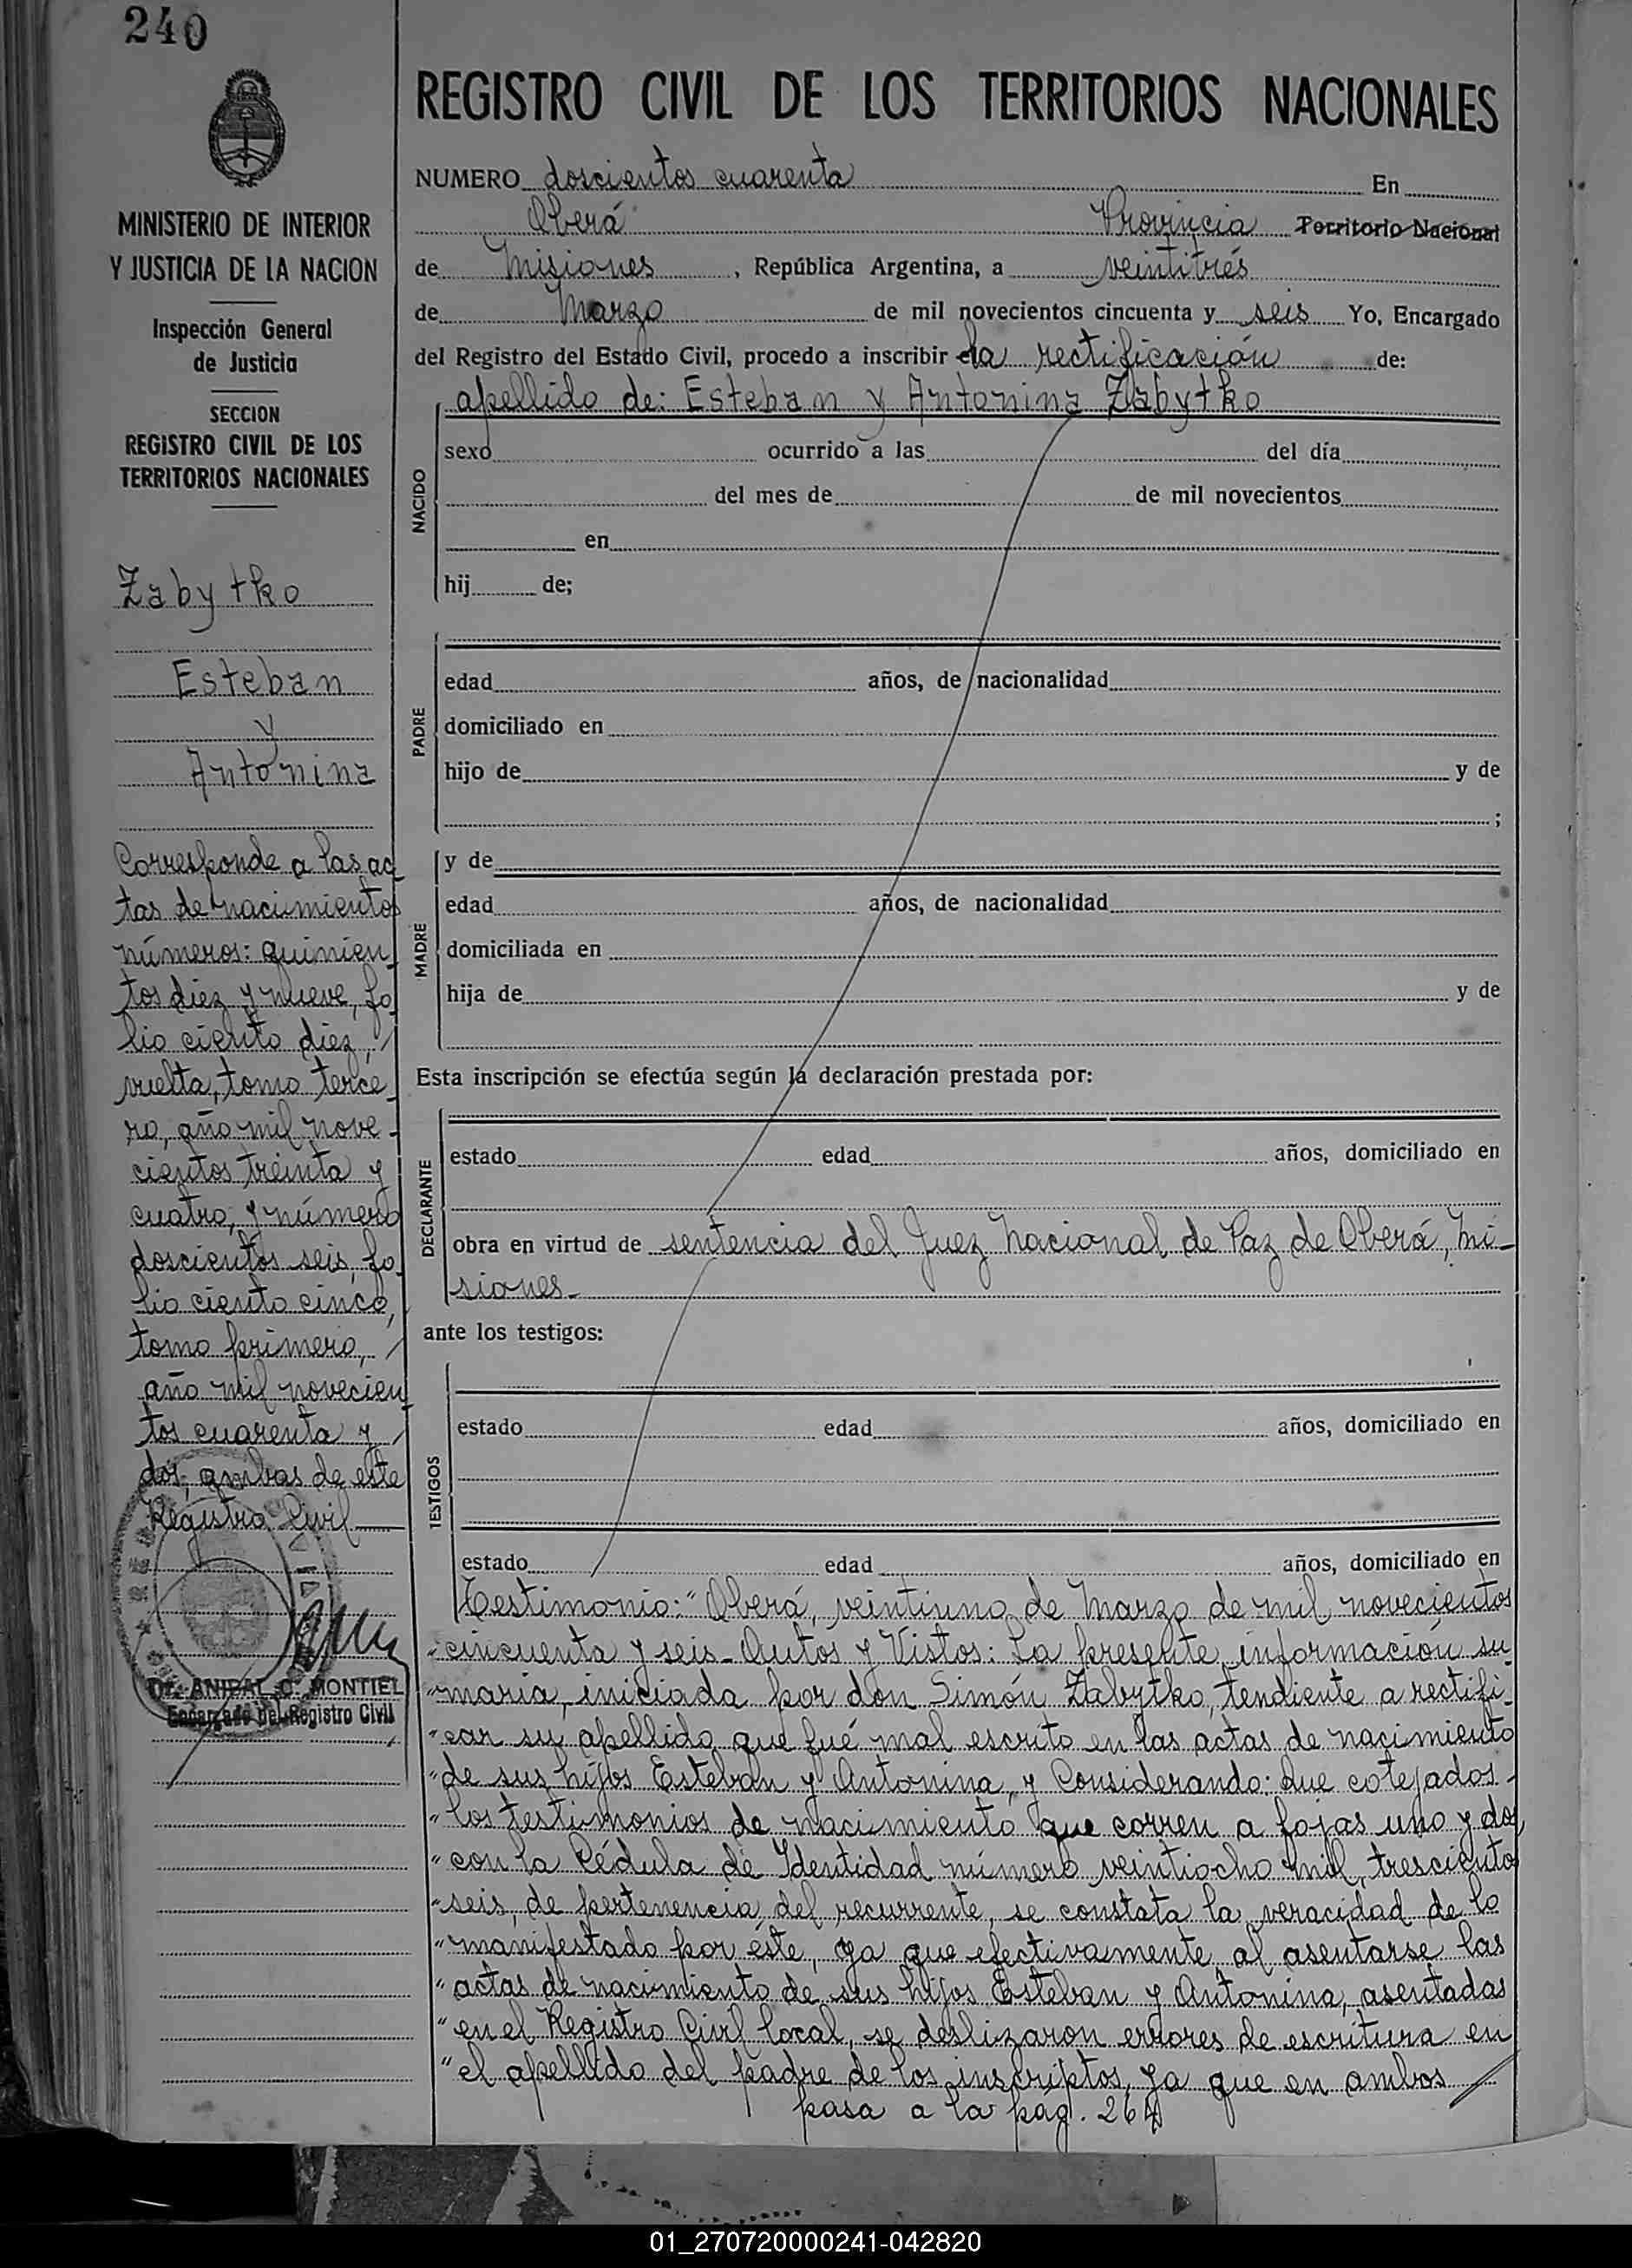 240
REGISTRO CIVIL DE LOS TERRITORIOS NACIONALES
MINISTERIO DE INTERIOR
Y JUSTICIA DE LA NACION
Inspección General
de Justicia
SECCION
REGISTRO CIVIL DE LOS
TERRITORIOS NACIONALES
Zabytko
Esteban
y
Antonina
Corresponde a las ac
tas de nacimientos
números: quinien
tos diez y nueve, fo
lio ciento diez,
vuelta, tomo terce
ro, año mil nove-
cientos treinta y
cuatro, y número
doscientos seis, fo
lio ciento cinco,
tomo primero,
año mil novecien
tos cuarenta y
dos, ambas de este
Registro Civil
Dr. ANIBAL C. MONTIEL
Encargado del Registro Civil
NUMERO doscientos cuarenta En
Oberá Provincia Territorio Nacional
de Misiones, República Argentina, a veintitrés
de Marzo de mil novecientos cincuenta y seis Yo, Encargado
del Registro del Estado Civil, procedo a inscribir la rectificación de:
apellido de: Esteban y Antonina Zabytko
NACIDO
sexo ocurrido a las del día
del mes de de mil novecientos
en
hij de;
PADRE
edad años, de nacionalidad
domiciliado en
hijo de y de
;
MADRE
y de
edad años, de nacionalidad
domiciliada en
hija de y de
Esta inscripción se efectúa según la declaración prestada por:
DECLARANTE
estado edad años, domiciliado en
obra en virtud de sentencia del Juez Nacional de Paz de Oberá, Mi-
siones-
ante los testigos:
TESTIGOS
estado edad años, domiciliado en
estado edad años, domiciliado en
Testimonio: "Oberá, veintiuno de Marzo de mil novecientos
"cincuenta y seis- Autos y Vistos: La presente información su
"maria, iniciada por don Simón Zabytko, tendiente a rectifi-
"car su apellido que fué mal escrito en las actas de nacimiento
"de sus hijos Esteban y Antonina, y Considerando: Que cotejados-
"los testimonios de nacimiento que corren a fojas uno y dos
"con la Cédula de Identidad número veintiocho mil trescientos
"seis, de pertenencia del recurrente, se constata la veracidad de lo
"manifestado por éste, ya que efectivamente al asentarse las
"actas de nacimiento de sus hijos Esteban y Antonina, asentadas
"en el Registro Civil local, se deslizaron errores de escritura en
"el apellido del padre de los inscriptos, ya que en ambos
pasa a la pag. 264
01_270720000241-042820